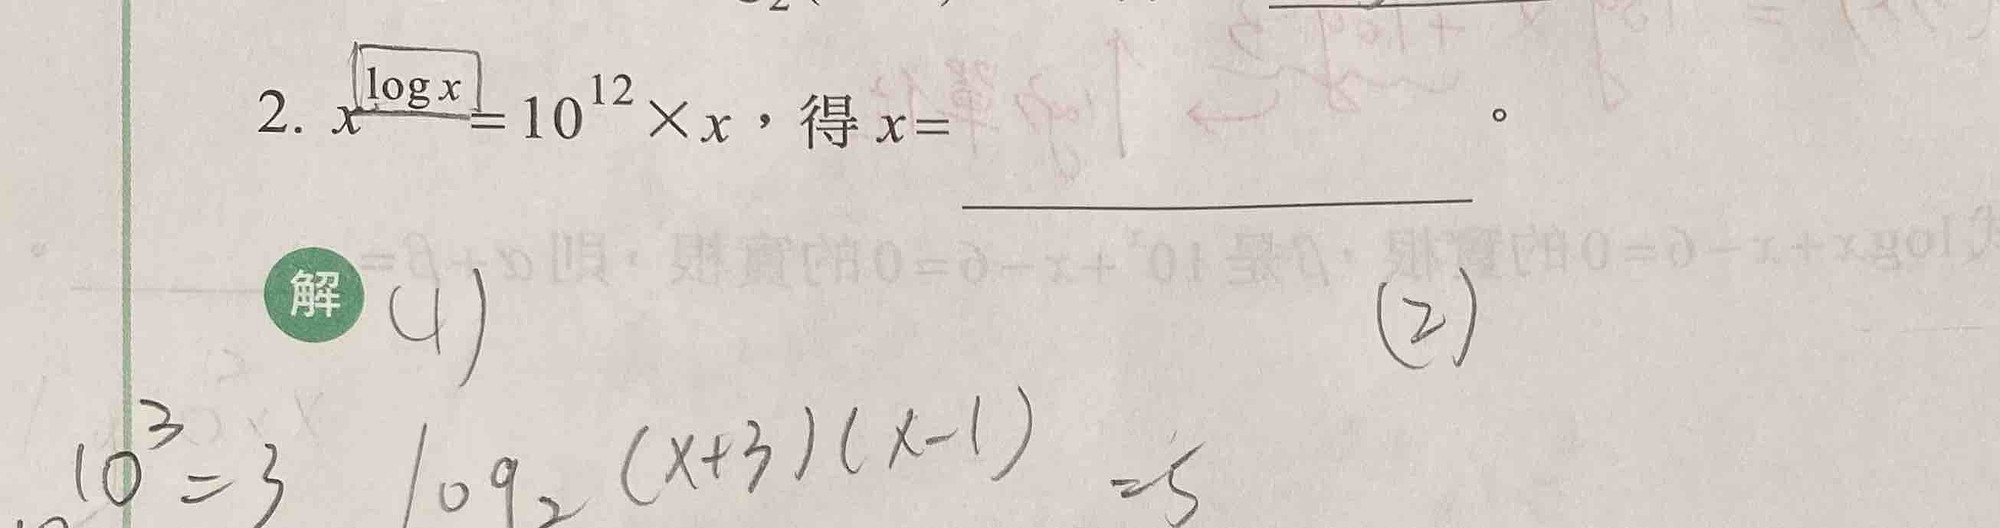 2. x^{log x} = 10^{12} × x，得 x= 。
解 (1) (2)
10^3 = 3 log_2 (x+3)(x-1) = 5